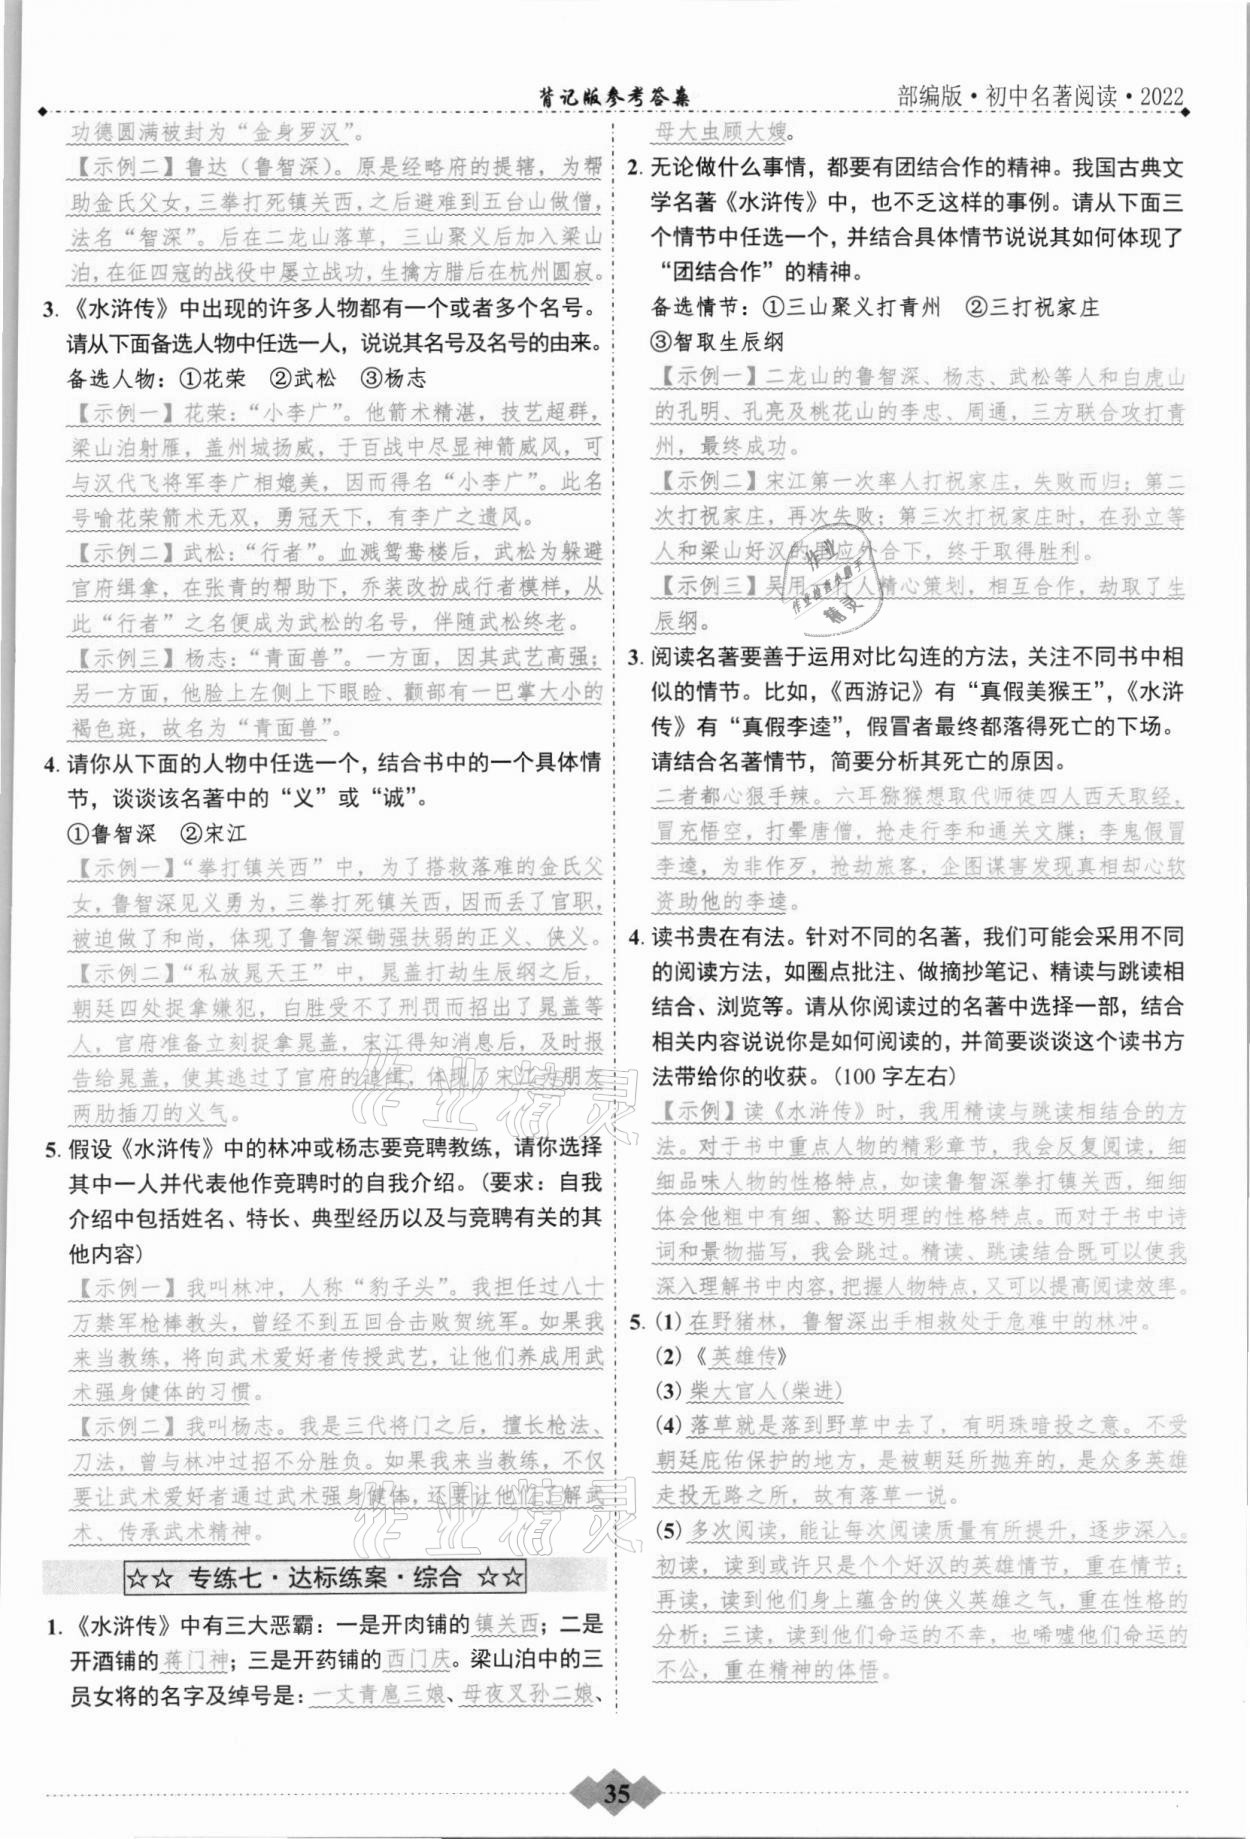 背记版参考答案
部编版·初中名著阅读·2022
功德圆满被封为“金身罗汉”。
【示例二】鲁达（鲁智深）。原是经略府的提辖，为帮
助金氏父女，三拳打死镇关西，之后避难到五台山做僧，
法名“智深”。后在二龙山落草，三山聚义后加入梁山
泊，在征四寇的战役中屡立战功，生擒方腊后在杭州圆寂。
3. 《水浒传》中出现的许多人物都有一个或者多个名号。
请从下面备选人物中任选一人，说说其名号及名号的由来。
备选人物：①花荣　②武松　③杨志
【示例一】花荣：“小李广”。他箭术精湛，技艺超群，
梁山泊射雁，盖州城扬威，于百战中尽显神箭威风，可
与汉代飞将军李广相媲美，因而得名“小李广”。此名
号喻花荣箭术无双，勇冠天下，有李广之遗风。
【示例二】武松：“行者”。血溅鸳鸯楼后，武松为躲避
官府缉拿，在张青的帮助下，乔装改扮成行者模样，从
此“行者”之名便成为武松的名号，伴随武松终老。
【示例三】杨志：“青面兽”。一方面，因其武艺高强；
另一方面，他脸上左侧上下眼睑、颧部有一巴掌大小的
褐色斑，故名为“青面兽”。
4. 请你从下面的人物中任选一个，结合书中的一个具体情
节，谈谈该名著中的“义”或“诚”。
①鲁智深　②宋江
【示例一】“拳打镇关西”中，为了搭救落难的金氏父
女，鲁智深见义勇为，三拳打死镇关西，因而丢了官职，
被迫做了和尚，体现了鲁智深锄强扶弱的正义、侠义。
【示例二】“私放晁天王”中，晁盖打劫生辰纲之后，
朝廷四处捉拿嫌犯，白胜受不了刑罚而招出了晁盖等
人，官府准备立刻捉拿晁盖，宋江得知消息后，及时报
告给晁盖，使其逃过了官府的追缉，体现了宋江为朋友
两肋插刀的义气。
5. 假设《水浒传》中的林冲或杨志要竞聘教练，请你选择
其中一人并代表他作竞聘时的自我介绍。（要求：自我
介绍中包括姓名、特长、典型经历以及与竞聘有关的其
他内容）
【示例一】我叫林冲，人称“豹子头”。我担任过八十
万禁军枪棒教头，曾经不到五回合击败贺统军。如果我
来当教练，将向武术爱好者传授武艺，让他们养成用武
术强身健体的习惯。
【示例二】我叫杨志。我是三代将门之后，擅长枪法、
刀法，曾与林冲过招不分胜负。如果我来当教练，不仅
要让武术爱好者通过武术强身健体，还要让他们了解武
术、传承武术精神。
☆☆ 专练七·达标练案·综合 ☆☆
1. 《水浒传》中有三大恶霸：一是开肉铺的镇关西；二是
开酒铺的蒋门神；三是开药铺的西门庆。梁山泊中的三
员女将的名字及绰号是：一丈青扈三娘、母夜叉孙二娘、
母大虫顾大嫂。
2. 无论做什么事情，都要有团结合作的精神。我国古典文
学名著《水浒传》中，也不乏这样的事例。请从下面三
个情节中任选一个，并结合具体情节说说其如何体现了
“团结合作”的精神。
备选情节：①三山聚义打青州　②三打祝家庄
③智取生辰纲
【示例一】二龙山的鲁智深、杨志、武松等人和白虎山
的孔明、孔亮及桃花山的李忠、周通，三方联合攻打青
州，最终成功。
【示例二】宋江第一次率人打祝家庄，失败而归；第二
次打祝家庄，再次失败；第三次打祝家庄时，在孙立等
人和梁山好汉的里应外合下，终于取得胜利。
【示例三】吴用一行人精心策划，相互合作，劫取了生
辰纲。
3. 阅读名著要善于运用对比勾连的方法，关注不同书中相
似的情节。比如，《西游记》有“真假美猴王”，《水浒
传》有“真假李逵”，假冒者最终都落得死亡的下场。
请结合名著情节，简要分析其死亡的原因。
二者都心狠手辣。六耳猕猴想取代师徒四人西天取经，
冒充悟空，打晕唐僧，抢走行李和通关文牒；李鬼假冒
李逵，为非作歹，抢劫旅客，企图谋害发现真相却心软
资助他的李逵。
4. 读书贵在有法。针对不同的名著，我们可能会采用不同
的阅读方法，如圈点批注、做摘抄笔记、精读与跳读相
结合、浏览等。请从你阅读过的名著中选择一部，结合
相关内容说说你是如何阅读的，并简要谈谈这个读书方
法带给你的收获。（100 字左右）
【示例】读《水浒传》时，我用精读与跳读相结合的方
法。对于书中重点人物的精彩章节，我会反复阅读，细
细品味人物的性格特点，如读鲁智深拳打镇关西，细细
体会他粗中有细、豁达明理的性格特点。而对于书中诗
词和景物描写，我会跳过。精读、跳读结合既可以使我
深入理解书中内容，把握人物特点，又可以提高阅读效率。
5. (1) 在野猪林，鲁智深出手相救处于危难中的林冲。
(2)《英雄传》
(3) 柴大官人(柴进)
(4) 落草就是落到野草中去了，有明珠暗投之意。不受
朝廷庇佑保护的地方，是被朝廷所抛弃的，是众多英雄
走投无路之所，故有落草一说。
(5) 多次阅读，能让每次阅读质量有所提升，逐步深入。
初读，读到或许只是个个好汉的英雄情节，重在情节；
再读，读到他们身上蕴含的侠义英雄之气，重在性格的
分析；三读，读到他们命运的不幸，也唏嘘他们命运的
不公，重在精神的体悟。
作业
作业检查小助手
精灵
作业精灵
作业精灵
35